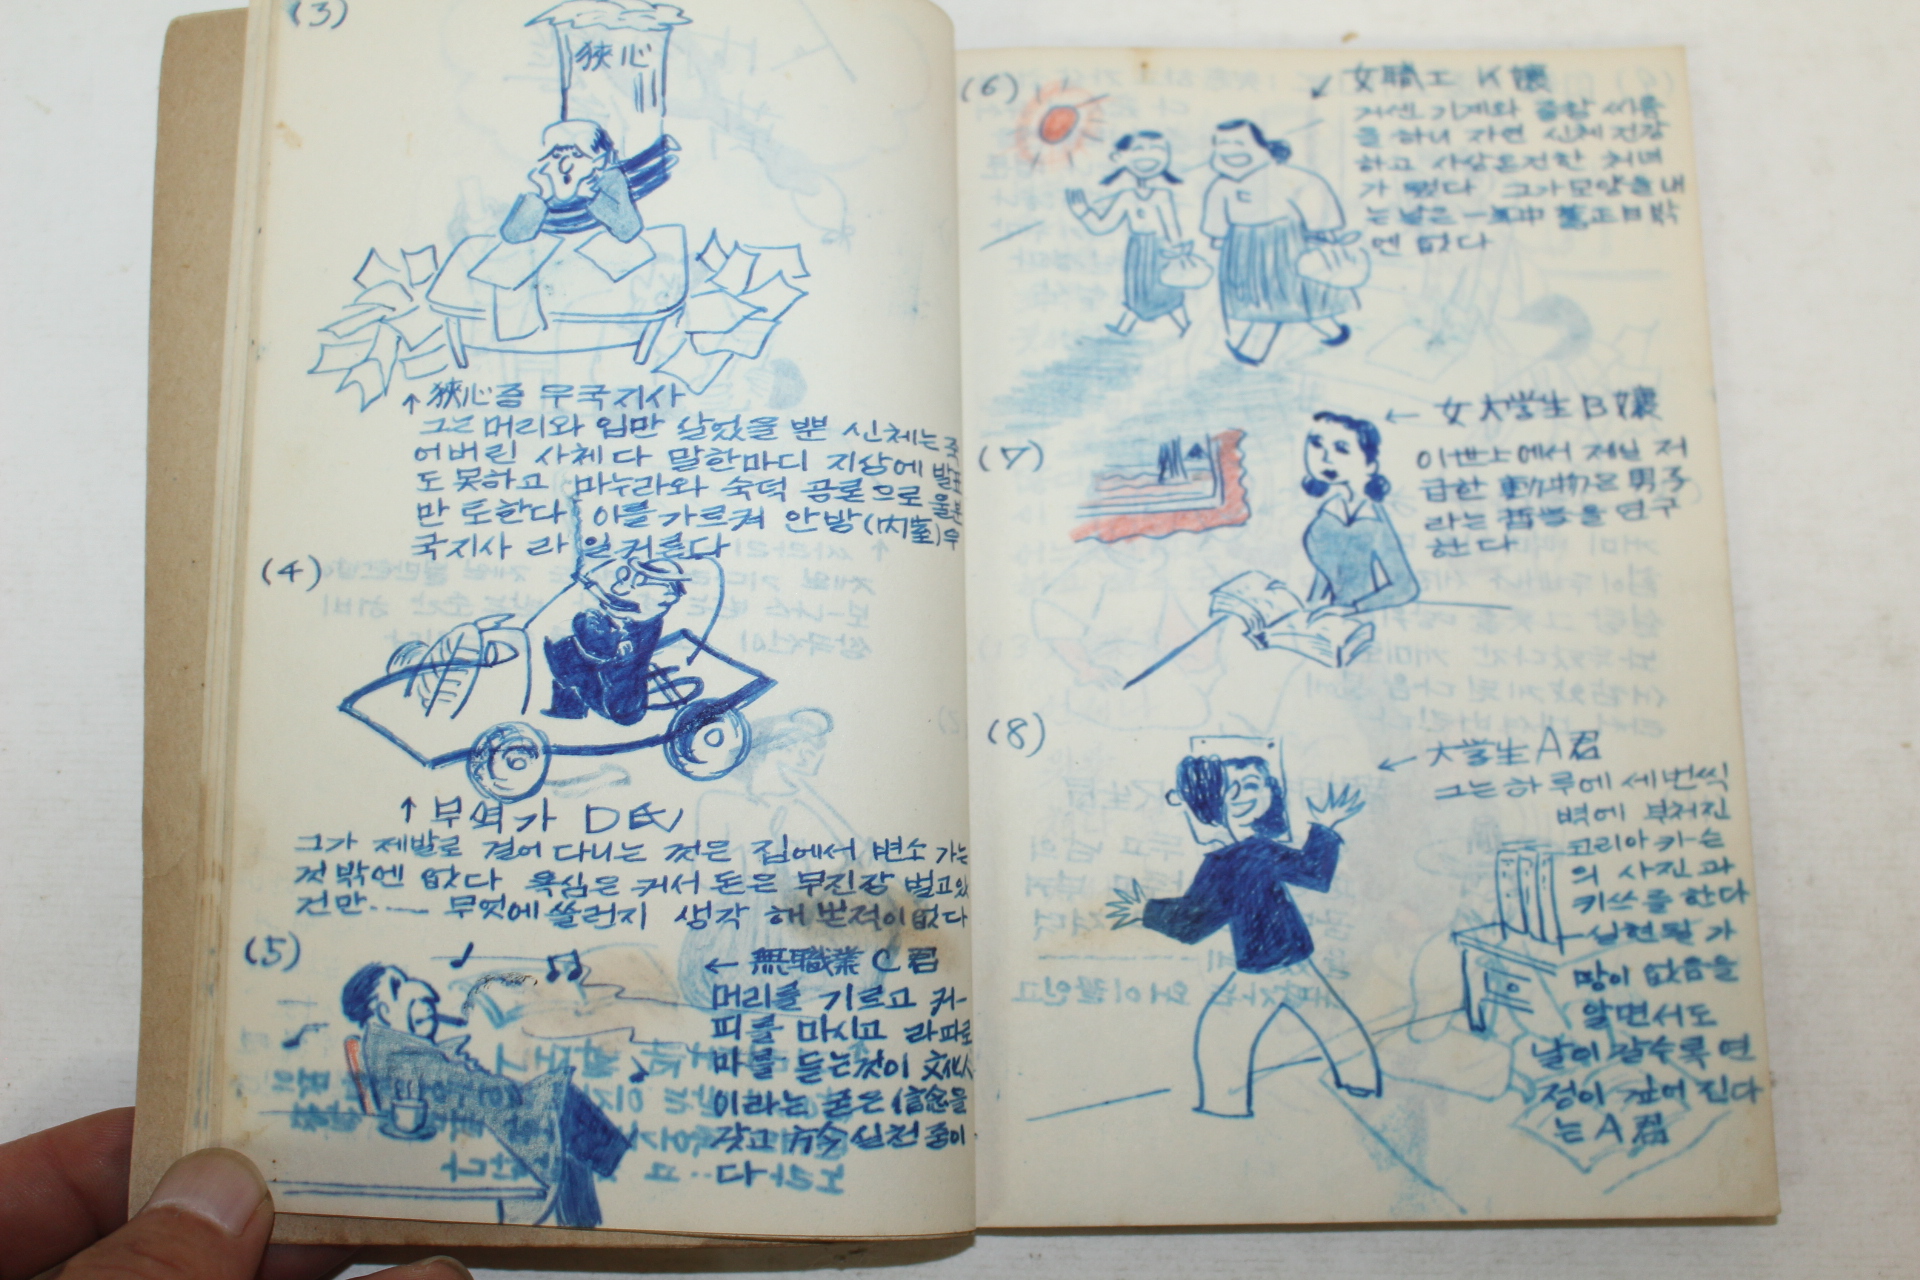 (3)
狹心
↑狹心증 우국지사
그는 머리와 입만 살았을 뿐 신체는 죽
어버린 사체다 말한마디 지상에 발표
도 못하고 마누라와 숙덕 공론으로 울분
만 토한다 이를 가르켜 안방(內室)우
국지사 라 일커른다
(4)
↑ 무역가 D氏
그가 제발로 걸어 다니는 것은 집에서 변소 가는
것 밖엔 없다 욕심은 커서 돈은 무진장 벌고있
건만····— 무엇에 쓸런지 생각 해 본적이 없다
(5)
← 無職業 C君
머리를 기르고 커-
피를 마시고 라파로
마를 듣는것이 文化人
이라는 굳은 信念을
갖고 方今 실천 중이
다
(6)
↙ 女職工 K孃
거센 기계와 종일 씨름
을 하니 자연 신체 건강
하고 사상은건한 처녀
가 됐다 그가 모양을 내
는 날은 一年中 舊正日 밖
엔 없다
(7)
← 女大学生 B孃
이 世上에서 제일 저
급한 動物은 男子
라는 哲学을 연구
한다
(8)
← 大学生 A君
그는 하루에 세번씩
벽에 부처진
코리아 카-슨
의 사진과
키쓰를 한다
실현될 가
망이 없음을
알면서도
날이 갈수록 연
정이 깊어 진다
는 A君